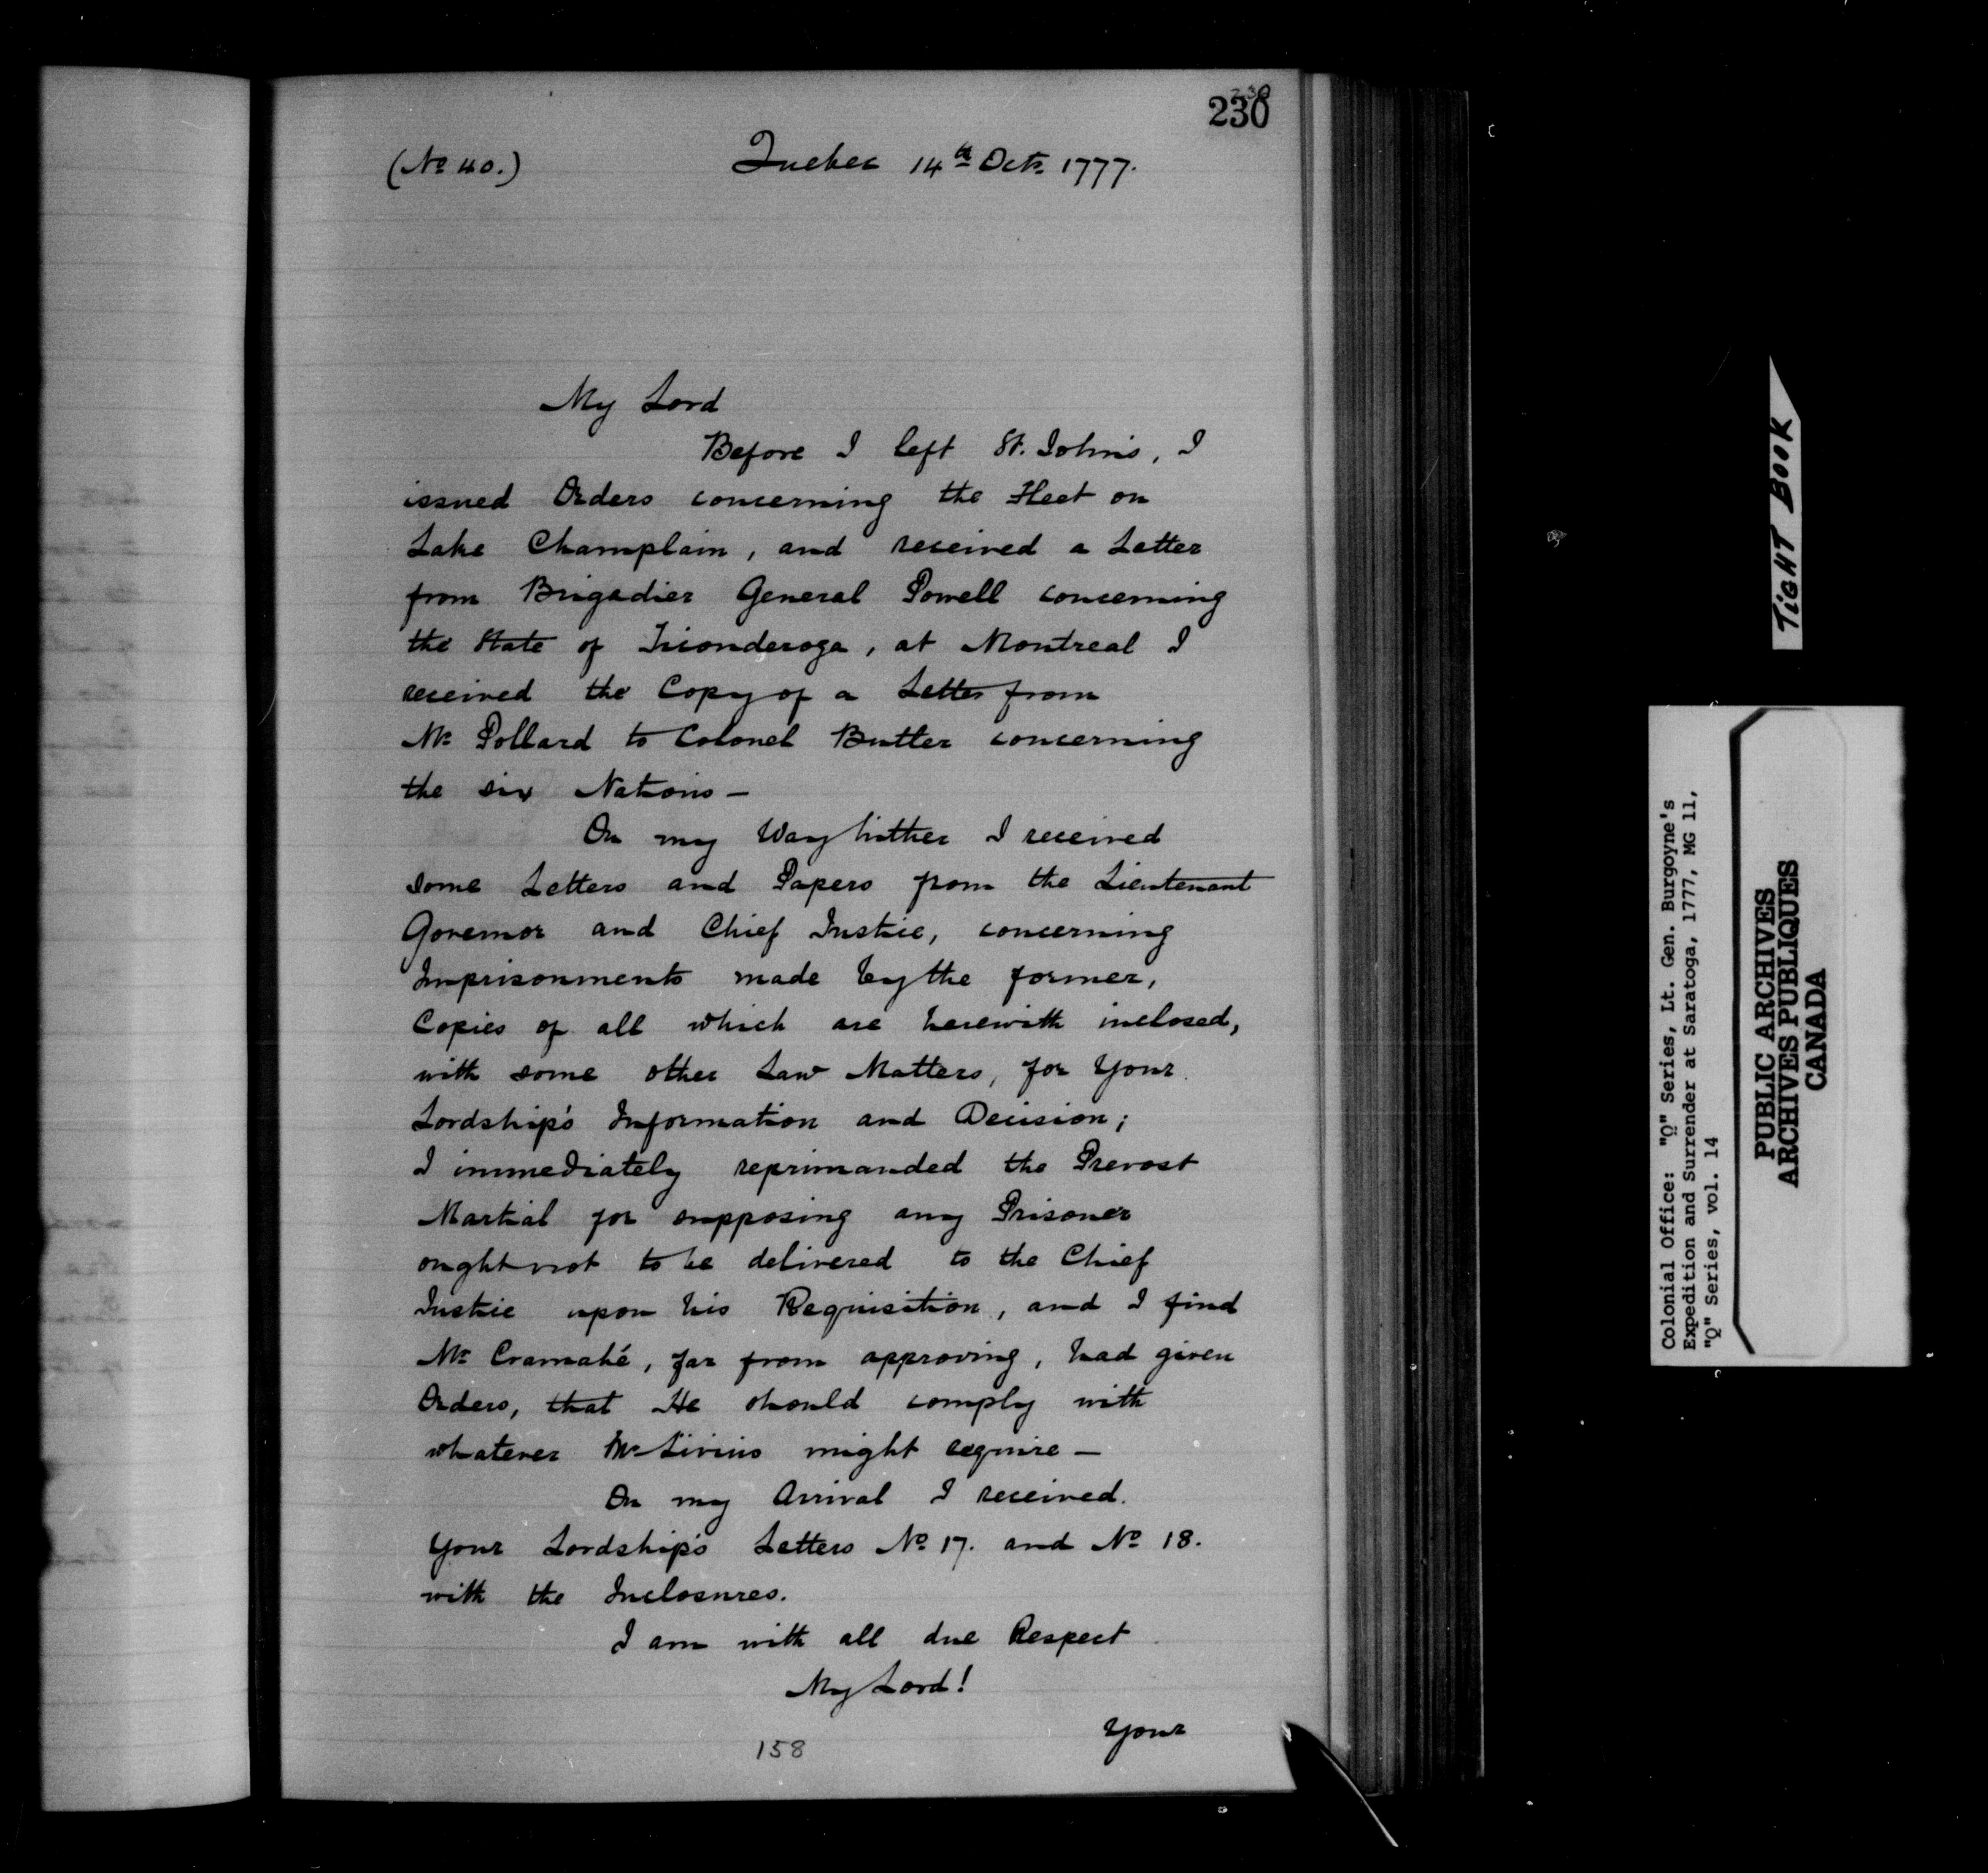 230
230
(No 40.)
Quebec 14th Octr 1777.
My Lord
Before I left St. John's, I
issued Orders concerning the Fleet on
Lake Champlain, and received a Letter
from Brigadier General Powell concerning
the State of Ticonderoga, at Montreal I
received the Copy of a Letter from
Mr Pollard to Colonel Butler concerning
the six Nations —
On my Way hither I received
some Letters and Papers from the Lieutenant
Governor and Chief Justice, concerning
Imprisonments made by the former,
Copies of all which are herewith inclosed,
with some other Law Matters, for Your
Lordship's Information and Decision;
I immediately reprimanded the Prevost
Martial for supposing any Prisoner
ought not to be delivered to the Chief
Justice upon his Requisition, and I find
Mr Cramahé, far from approving, had given
Orders, that He should comply with
whatever Mr Livius might require —
On my Arrival I received.
Your Lordship's Letters No 17. and No 18.
with the Inclosures.
I am with all due Respect
My Lord!
Your
158
TIGHT BOOK
Colonial Office: "Q" Series, Lt. Gen. Burgoyne's
Expedition and Surrender at Saratoga, 1777, MG 11,
"Q" Series, vol. 14
PUBLIC ARCHIVES
ARCHIVES PUBLIQUES
CANADA